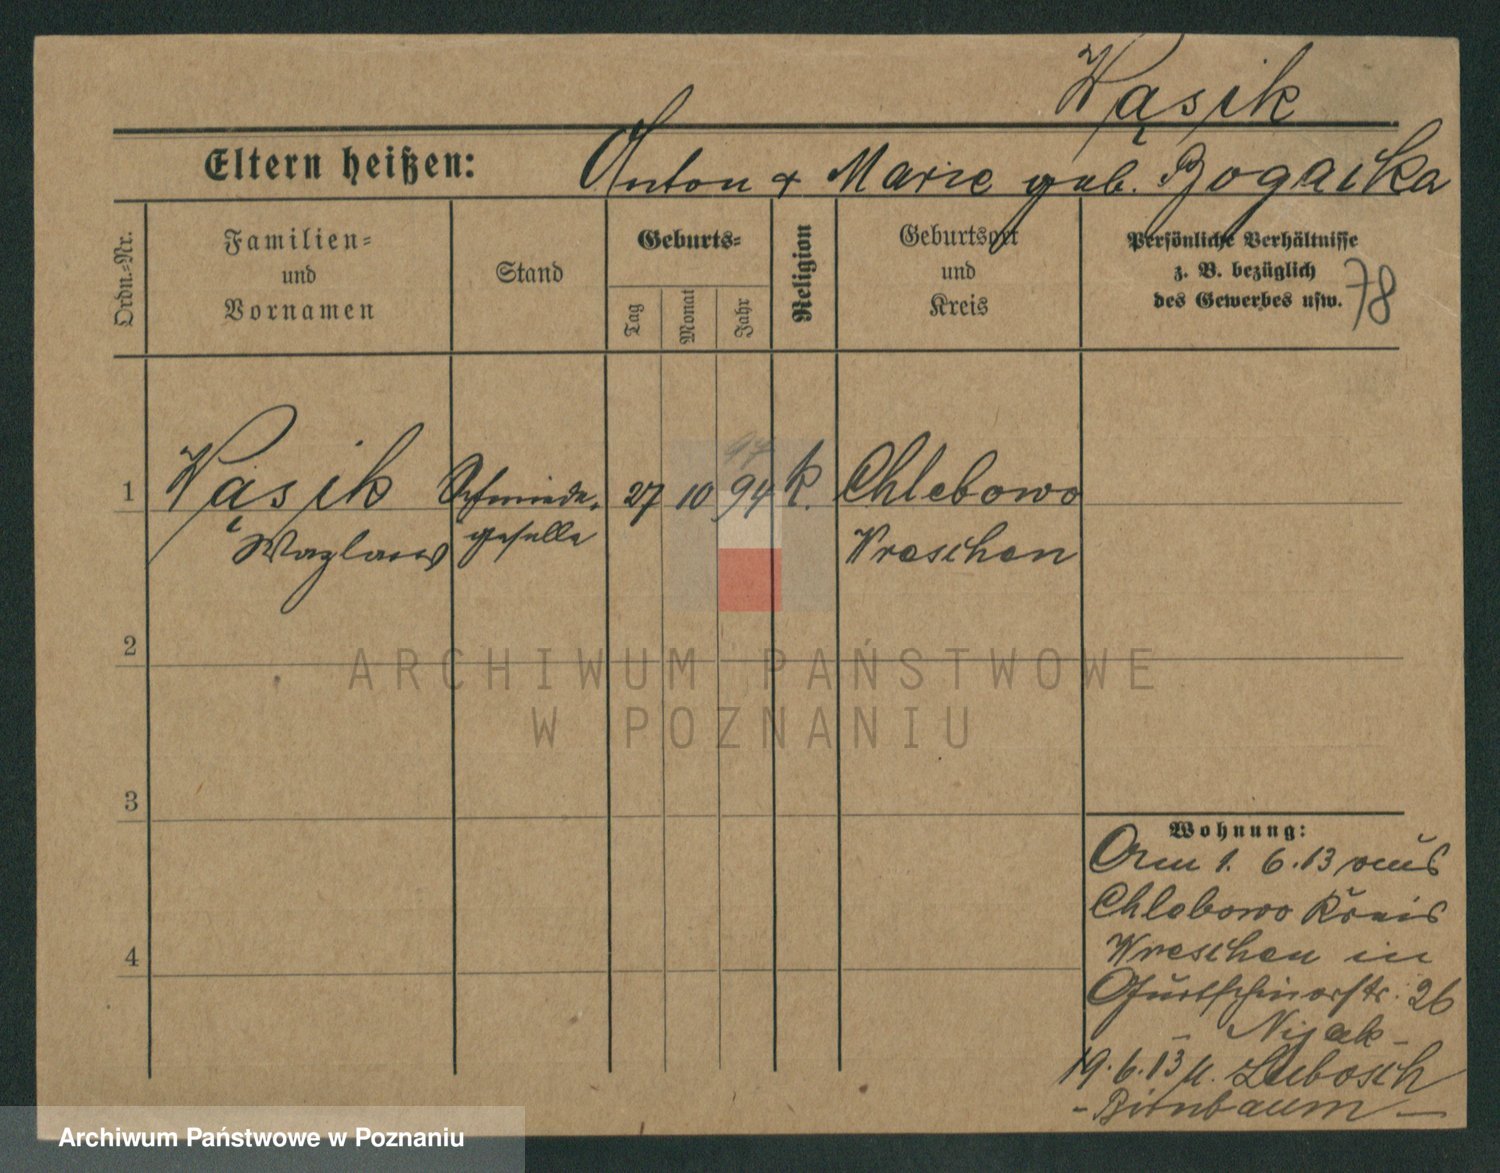 Wąsik
Eltern heißen: Anton & Marie geb. Bogaćka
Ordn.-Nr.
Familien-
und
Vornamen
Stand
Geburts-
Tag
Monat
Jahr
Religion
Geburtsort
und
Kreis
Persönliche Verhältnisse
z. B. bezüglich
des Gewerbes usw.
78
94
1 Wąsik Schmiede- 27 10 94 k. Chlebowo
Wazlaw geselle Wreschen
2
ARCHIWUM PAŃSTWOWE
W POZNANIU
3
Wohnung:
Am 1. 6.13 aus
Chlebowo Kreis
Wreschen in
Gurtschinerstr. 26
- Nijak -
19.6.13 n. Lubosch
- Birnbaum -
4
Archiwum Państwowe w Poznaniu